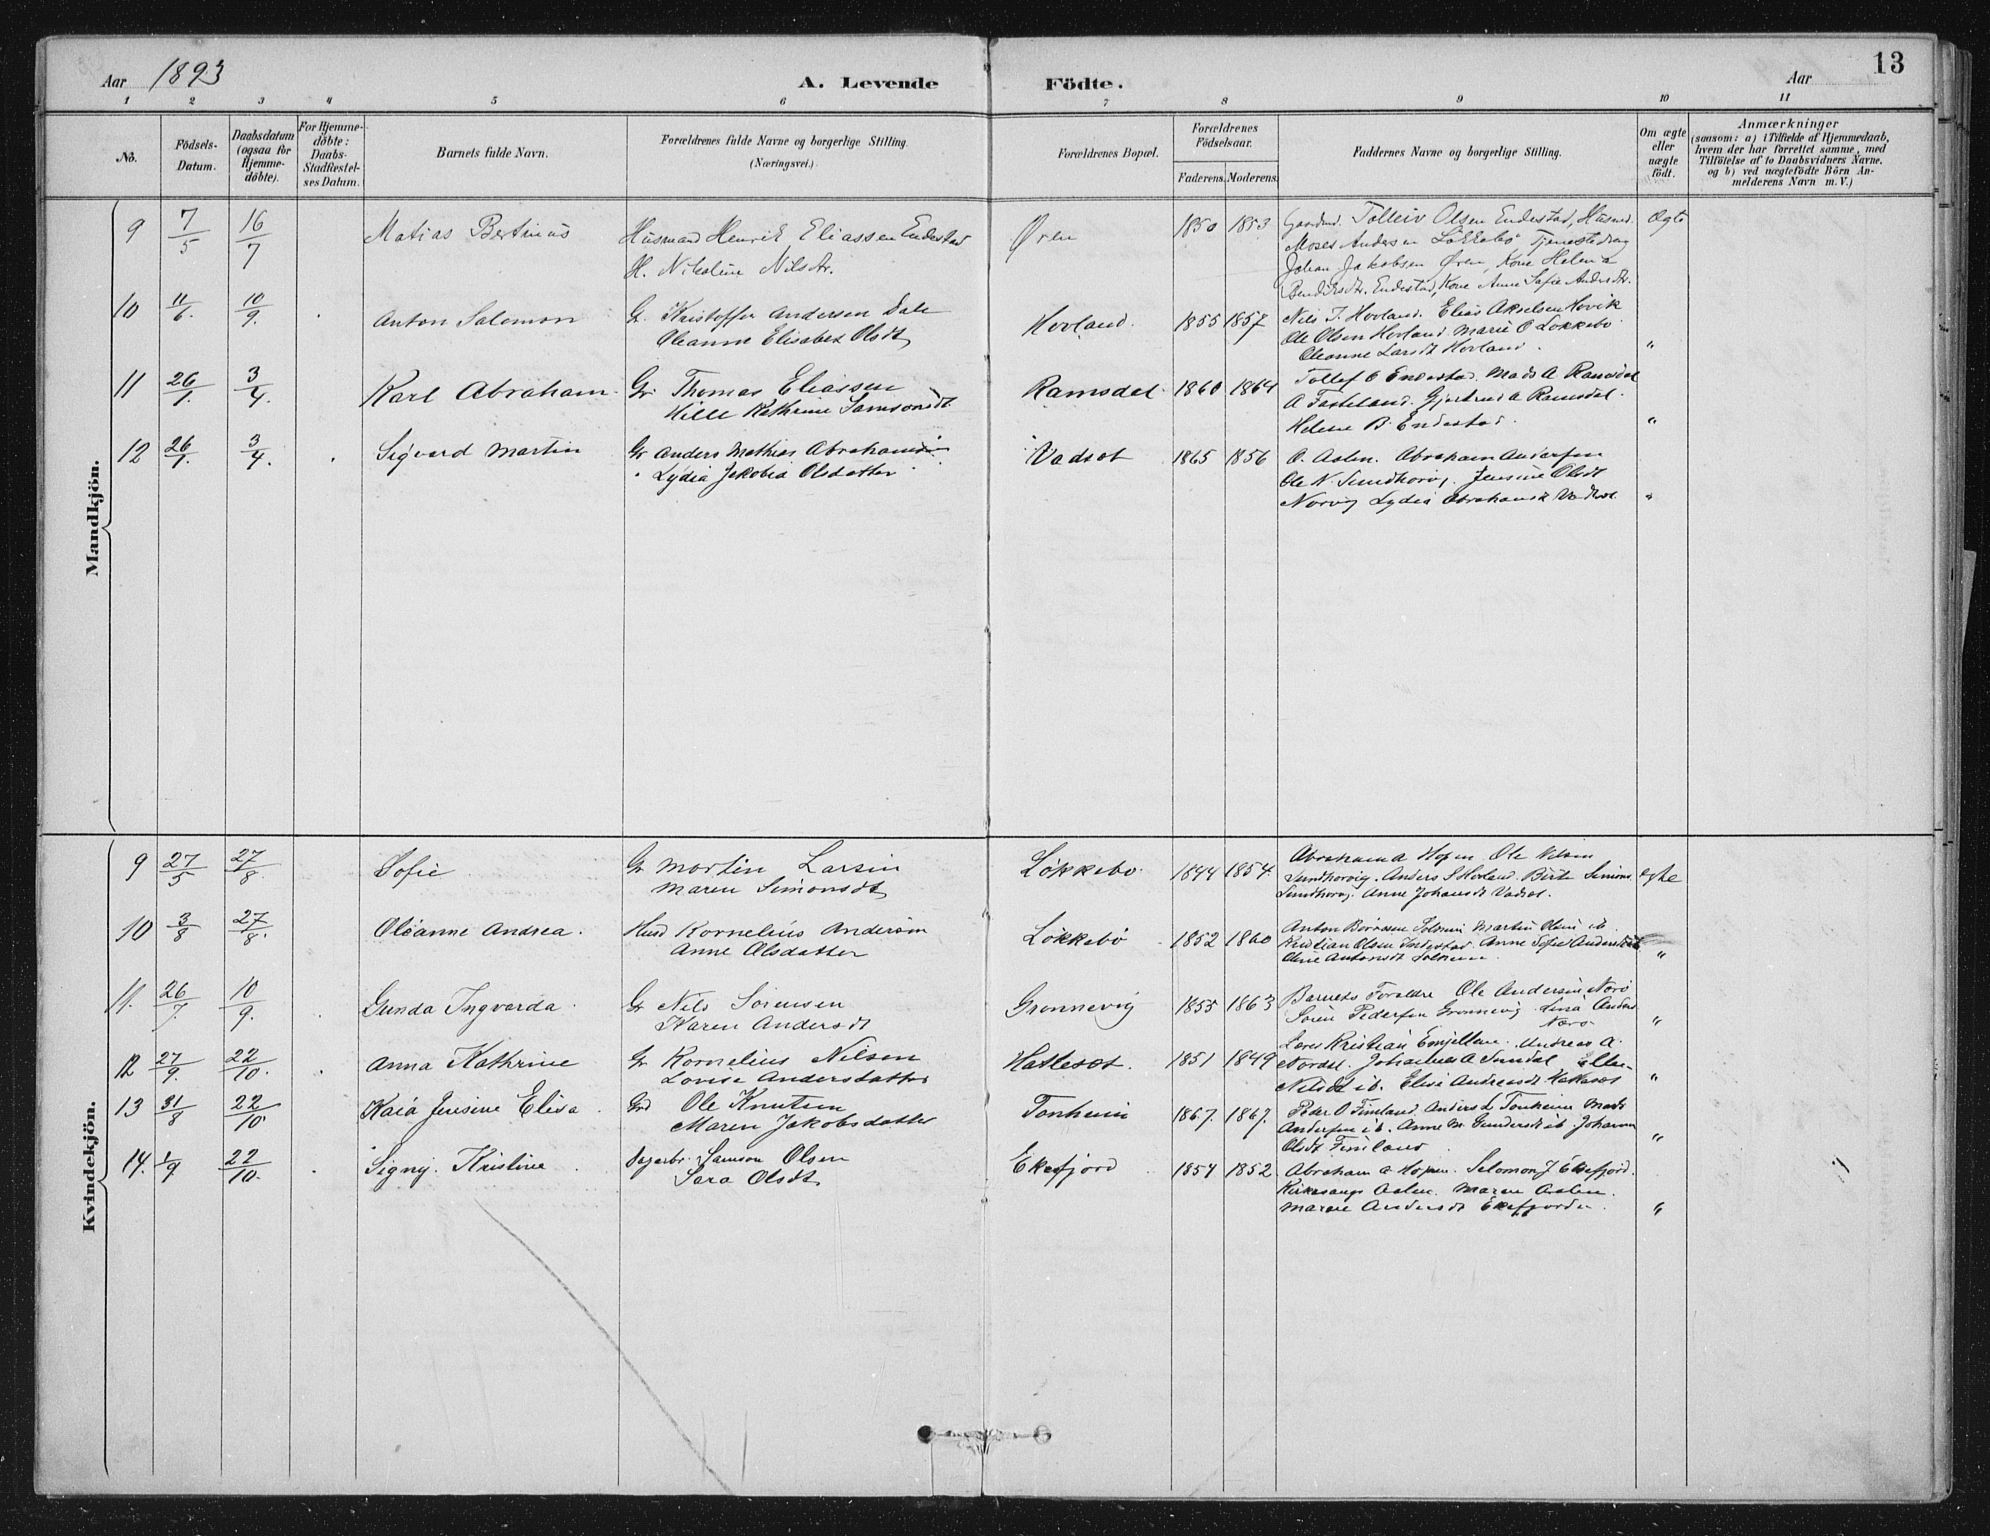 13
Aar 1893 A. Levende Födte. Aar
1 2 3 4 5 6 7 8 9 10 11
No.
Födsels-
Datum.
Daabsdatum
(ogsaa for
Hjemme-
døbte).
For Hjemme-
døbte:
Daabs-
Stadfæstel-
ses Datum.
Barnets fulde Navn.
Forældrenes fulde Navne og borgerlige Stilling.
(Næringsvei.)
Forældrenes Bopæl.
Forældrenes
Födselsaar.
Faderens. Moderens.
Faddernes Navne og borgerlige Stilling.
Om ægte
eller
uægte
födt.
Anmærkninger
(saasom: a) i Tilfælde af Hjemmedaab,
hvem der har forrettet samme, med
Tilföielse af to Daabsvidners Navne,
og b) ved uægtefödte Börn An-
melderens Navn m. V.)
Mandkjön.
9 7/5 16/7 Matias Bertinus
Husmand Henrik Eliassen Endestad
H. Nikoline Nilsdr.
Øren 1850 1853
Gaardmd. Tolleiv Olsen Endestad, Husmd.
Moses Andersen Løkkebø, Tjenestedreng
Johan Jakobsen Øren, Kone Helena
Bendiksdtr. Endestad, Kone Anne Sofie Andersdtr.
Ægte
10 11/6 10/9 Anton Salomon
G. Kristoffer Andersen Dale
Oleanne Elisabet Olsdt
Hovland. 1855 1857
Nils T. Hovland. Elias Akselsen Hovik
Ole Olsen Hovland Marie O Løkkebø.
Oleanne Larsdt Hovland.
"
11 26/1 3/4 Karl Abraham
Gr Thomas Eliassen
Hille Kathrine Samsonsdt
Ramsdal 1860 1864
Tollef O Endestad. Mads A Ramsdal
A Fasteland. Gjertrud A Ramsdal.
Helene B. Endestad.
"
12 26/1 3/4 Sigvard Martin
Gr Anders Mathias Abrahamsen
Lydia Jakobia Olsdatter
Vadset 1865 1856
O. Aslen. Abraham Andersen
Ole N. Sundhorvig. Jensine Olsdt
Norvig Lydia Abrahamsdt Vadset
"
Kvindekjön.
9 27/5 27/8 Sofie
Gr Martin Larsin
Maren Simonsdt
Løkkebø 1844 1854
Abraham A Hopen Ole Nilsen
Sundhorvig. Anders S Hovland. Birte Simons
Sundhorvig. Anne Johansdt Vadset.
egte
10 3/8 27/8. Oleanne Andrea.
Husd Kornelius Andersen
Anne Olsdatter
Løkkebø 1852 1860
Martin Olsen ib.
Kristian Olsen Indestad. Anne Sofie Andersdt
"
11. 26/7 10/9. Gunda Ingvarda
Gr Nils Sørensen
Karen Andersdt
Grønnevig 1855 1863
Barnets Forældre Ole Andersen Norø
Søren Pedersen Grønnevig Lina Anders
Norø
"
12 27/9. 22/10. Anna Kathrine
Gr Kornelius Nilsen
Lovise Andersdatter
Hatleset 1851 1849
Andreas A.
Nordal. Johannes A Sundal Ellen
Nilsdt ib. Elise Andreasdt Hatleset
"
13 31/8 22/10 Kaia Jensine Elisa
Grd Ole Knutsen
Maren Jakobsdatter
Tonheim 1867. 1867.
Peder O Fimland. Anders L Tonheim Mads
Andersen ib. Anne M. Gundersdt ib. Johanne
Olsdt Fimland
"
14. 1/9 22/10. Signy. Kristine
Samson Olsen
Sara Olsdt
Ekefjord 1854 1852
Abraham A Hopen. Salomon J Ekefjord.
Kirkesangr Aslen. Maren Aslen.
Maren Andersdt Ekefjorden.
"